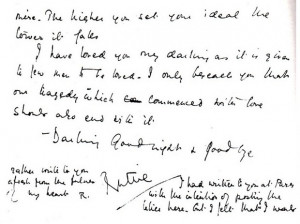 mine. The higher you set your ideal the
lower it falls
I have loved you my darling as it is given
to few men to be loved. I only beseech you that
our tragedy which commenced with love
should also end with it.
- Darling Good night & Goodbye
Ruttie
rather write to you
afresh from the fulness
of my heart R.
I had written to you at Paris
with the intention of posting the
letter here. But I felt that I would